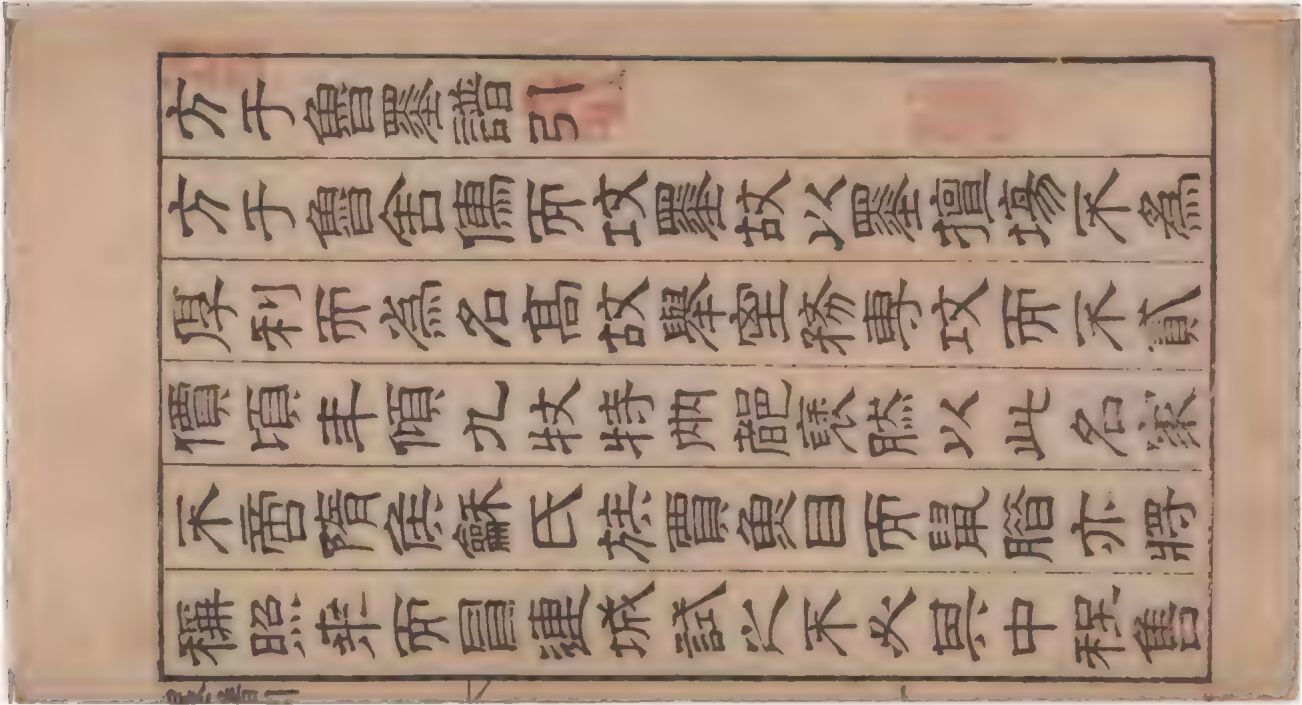 方于魯墨譜引
方于魯舍儁而攻墨故以墨擅場不為
厚利而為名高故舉室務專攻而不貳
價頃年傾九牧特龍裒然以此名家
不啻隋侯龢氏賈魚目而鼠腊亦將
稱照乘而冒連城試之不必其中程舊